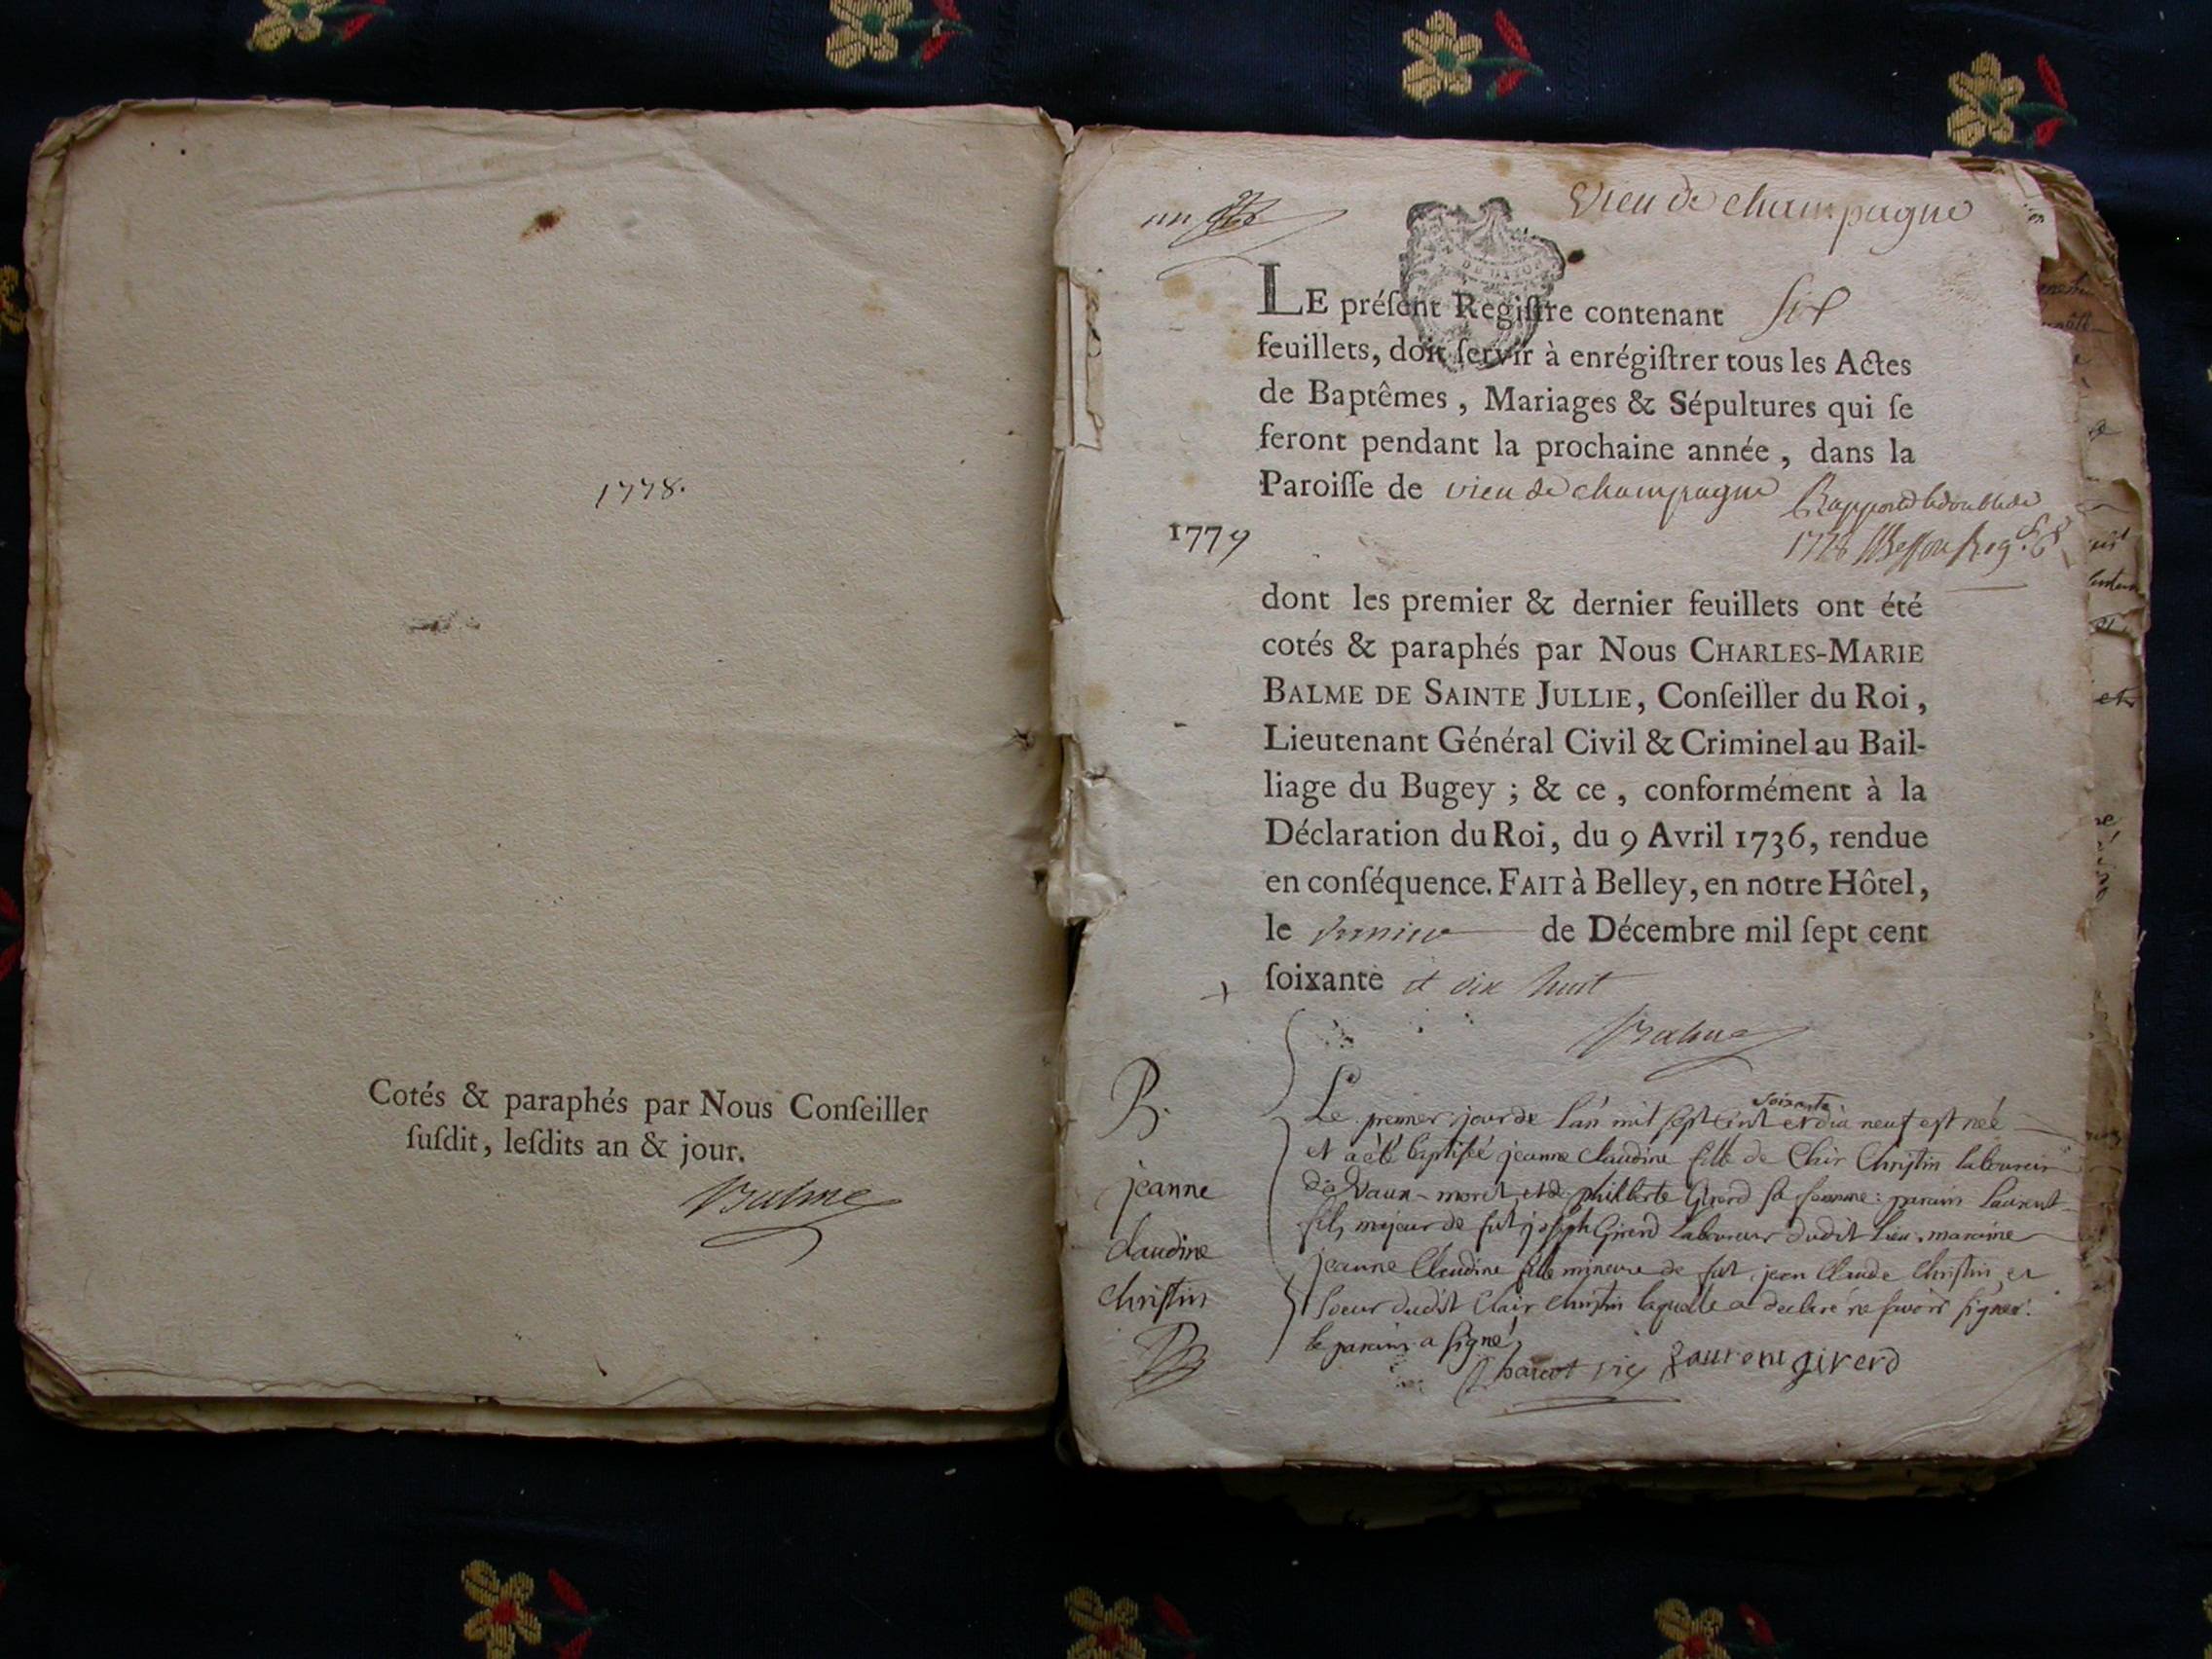 1778.
Cotés & paraphés par Nous Conſeiller
ſuſdit, leſdits an & jour.
Balme
un
vieu de champagne
LE préſent Regiſtre contenant six
feuillets, doit ſervir à enrégiſtrer tous les Actes
de Baptêmes, Mariages & Sépultures qui ſe
feront pendant la prochaine année, dans la
Paroiſſe de vieu de champagne
Rapporté le double de
1779
1778
dont les premier & dernier feuillets ont été
cotés & paraphés par Nous CHARLES-MARIE
BALME DE SAINTE JULLIE, Conſeiller du Roi,
Lieutenant Général Civil & Criminel au Bail-
liage du Bugey ; & ce, conformément à la
Déclaration du Roi, du 9 Avril 1736, rendue
en conſéquence. FAIT à Belley, en notre Hôtel,
le premier de Décembre mil ſept cent
ſoixante et dix huit
Balme
B.
jeanne
claudine
christin
soixante
Le premier jour de l'an mil sept cent et dix neuf est née
et a été baptisée jeanne claudine fille de Clair Christin laboureur
de Vaux-moret et de philiberte Girerd sa femme : parain Laurent
fils majeur de fut joseph Girerd laboureur dudit lieu. maraine
jeanne Claudine fille mineure de fut jean Claude Christin et
soeur dudit Clair Christin laquelle a declaré ne savoir signer.
le parain a signé
laurent girerd